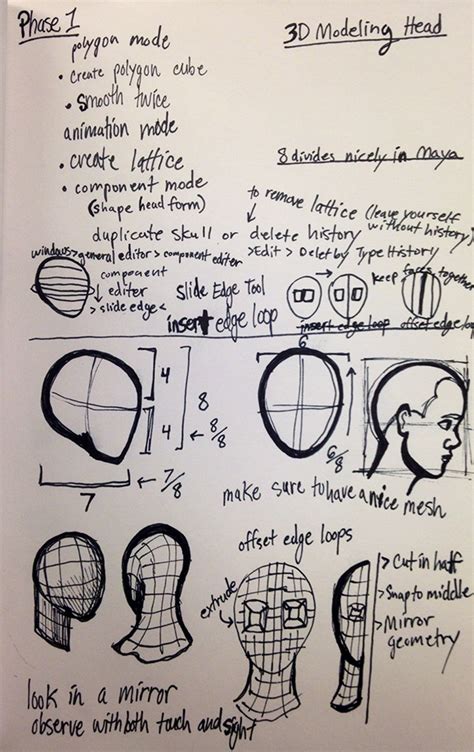 Phase 1
3D Modeling Head
polygon mode
• create polygon cube
• smooth twice
animation mode
• create lattice
• component mode
(shape head form)
8 divides nicely in Maya
to remove lattice (leave yourself
without history)
duplicate skull or delete history
windows>general editor> component editer
>Edit > Delet by Type History
component
editer
> slide edge <
Slide Edge Tool
insert edge loop
keep faces together
insert edge loop offset edge loop
4
4
8
← 8/8
7
← 7/8
6
6/8
make sure to have a nice mesh
offset edge loops
extrude
> Cut in half
> Snap to middle
> Mirror
geometry
look in a mirror
observe with both touch and sight